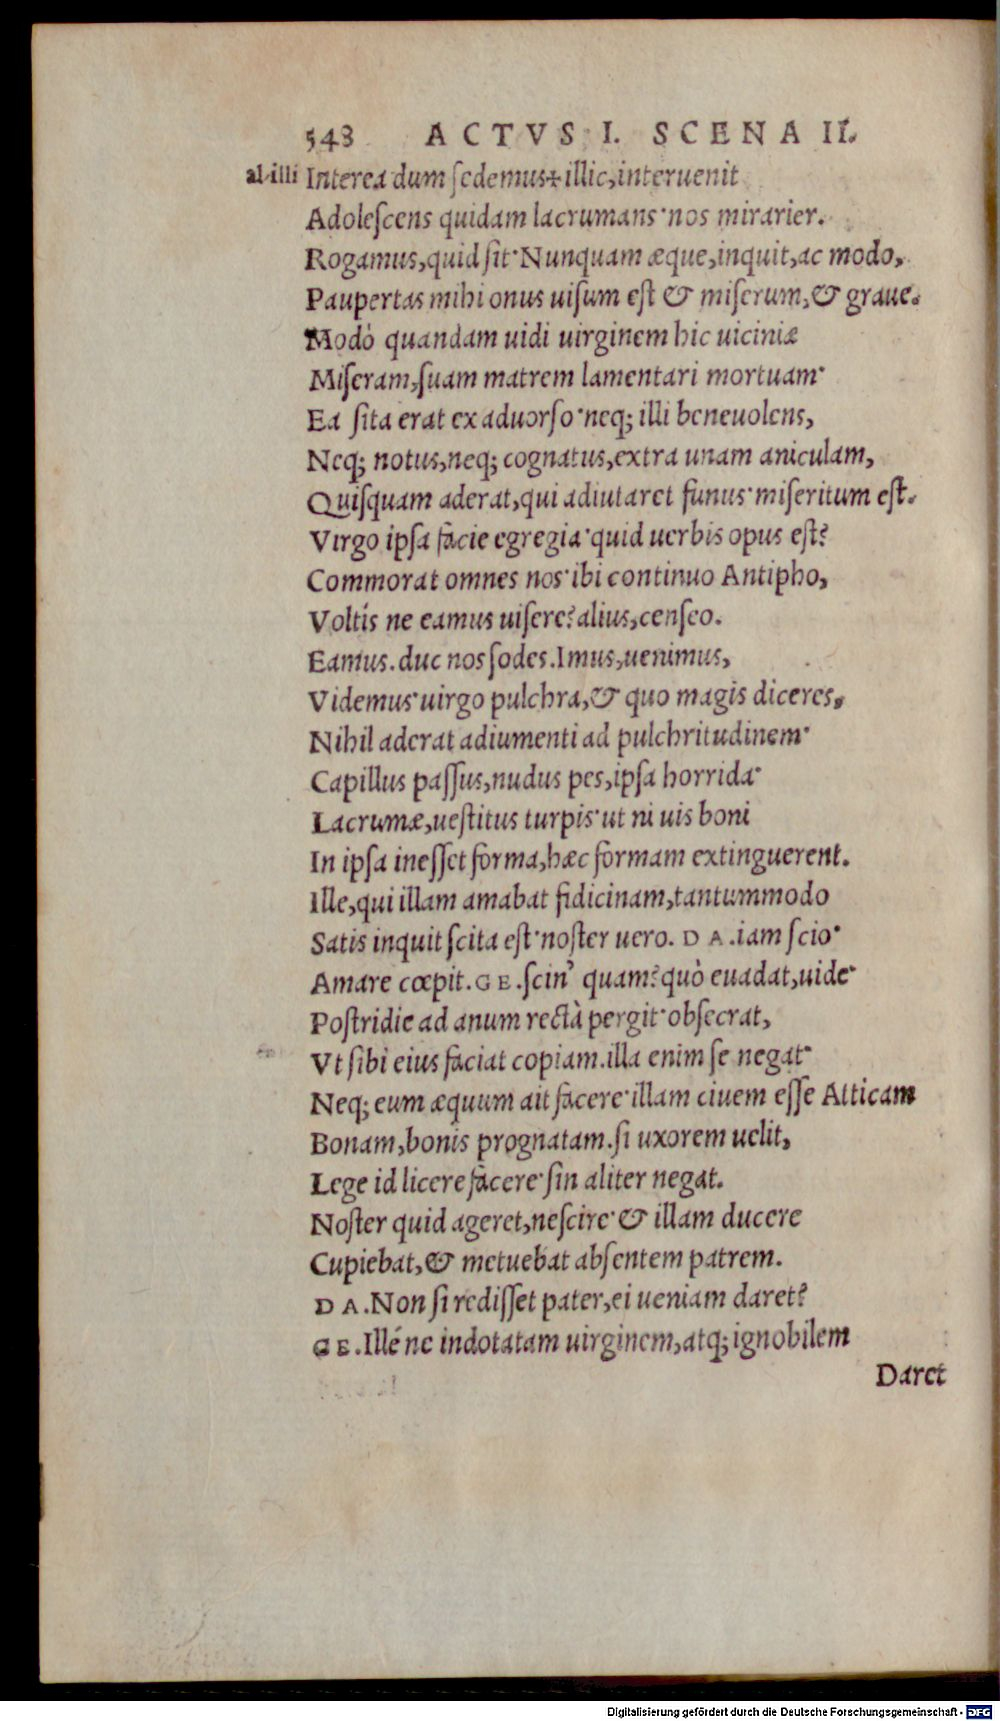 548 ACTVS I. SCENA II.
al·illi Interea dum ſedemus+illic,interuenit
Adoleſcens quidam lacrumans·nos mirarier.
Rogamus,quid ſit·Nunquam æque,inquit,ac modo,
Paupertas mihi onus uiſum eſt & miſerum,& graue.
Modò quandam uidi uirginem hic uiciniæ
Miſeram,ſuam matrem lamentari mortuam·
Ea ſita erat ex aduorſo·neq; illi beneuolens,
Neq; notus,neq; cognatus,extra unam aniculam,
Quiſquam aderat,qui adiutaret funus·miſeritum eſt.
Virgo ipſa facie egregia·quid uerbis opus eſt?
Commorat omnes nos·ibi continuo Antipho,
Voltís ne eamus uiſere?alius,cenſeo.
Eamus.duc nos ſodes.Imus,uenimus,
Videmus·uirgo pulchra,& quo magis diceres,
Nihil aderat adiumenti ad pulchritudinem·
Capillus paſſus,nudus pes,ipſa horrida·
Lacrumæ,ueſtitus turpis·ut ni uis boni
In ipſa ineſſet forma,hæc formam extinguerent.
Ille,qui illam amabat fidicinam,tantummodo
Satis inquit ſcita eſt·noſter uero. DA.iam ſcio·
Amare cœpit.GE.ſcin' quam?quò euadat,uide·
Poſtridie ad anum rectà pergit·obſecrat,
Vt ſibi eius faciat copiam.illa enim ſe negat·
Neq; eum æquum ait facere·illam ciuem eſſe Atticam
Bonam,bonis prognatam.ſi uxorem uelit,
Lege id licere facere·ſin aliter negat.
Noſter quid ageret,neſcire·& illam ducere
Cupiebat,& metuebat abſentem patrem.
DA.Non ſi rediſſet pater,ei ueniam daret?
GE.Illé ne indotatam uirginem,atq; ignobilem
Daret
Digitalisierung gefördert durch die Deutsche Forschungsgemeinschaft - DFG